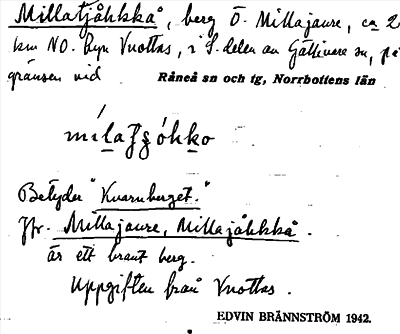 Millatjåhkkå, berg Ö. Millajaure, ca 2
km NO. byn Vuottas, i S. delen av Gällivare sn, på
gränsen vid Råneå sn och tg, Norrbottens län
mílatsóhko
Betyder "Kvarnberget."
Jfr. Millajaure, Millajåhkkå.
är ett brant berg.
Uppgiften från Vuottas.
EDVIN BRÄNNSTRÖM 1942.